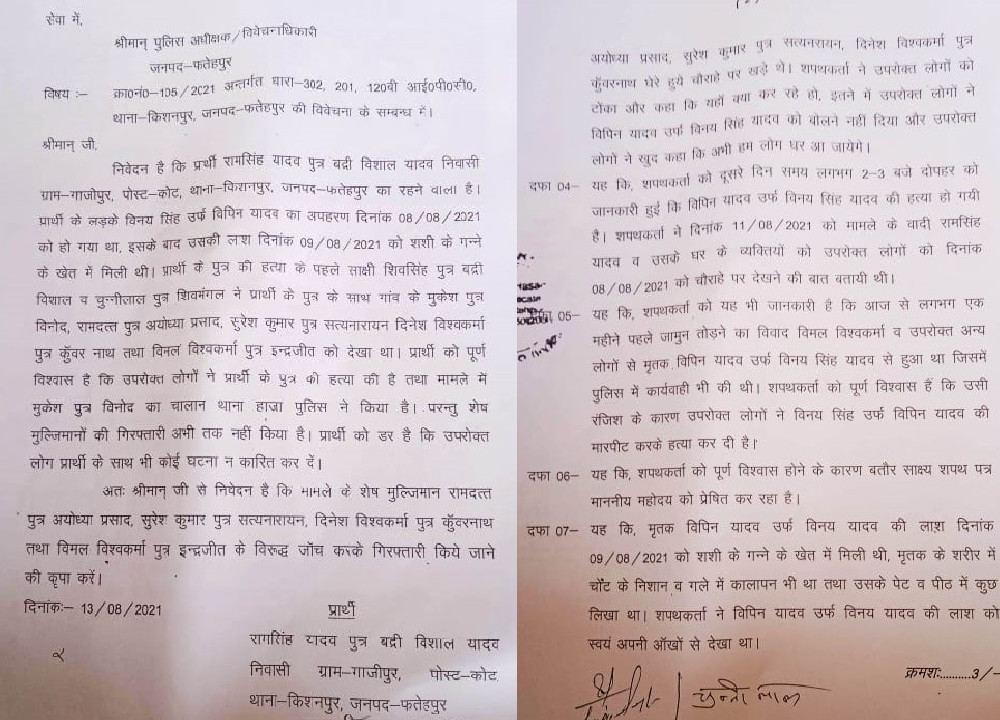 सेवा में,
श्रीमान् पुलिस अधीक्षक/विवेचनाधिकारी
जनपद–फतेहपुर
विषय :– क्रा०नं०–105/2021 अन्तर्गत धारा–302, 201, 120बी आई०पी०सी०,
थाना–किशनपुर, जनपद–फतेहपुर की विवेचना के सम्बन्ध में।
श्रीमान् जी,
निवेदन है कि प्रार्थी रामसिंह यादव पुत्र बद्री विशाल यादव निवासी
ग्राम–गाजीपुर, पोस्ट–कोट, थाना–किशनपुर, जनपद–फतेहपुर का रहने वाला है।
प्रार्थी के लड़के विनय सिंह उर्फ विपिन यादव का अपहरण दिनांक 08/08/2021
को हो गया था, इसके बाद उसकी लाश दिनांक 09/08/2021 को शशी के गन्ने
के खेत में मिली थी। प्रार्थी के पुत्र की हत्या के पहले साक्षी शिवसिंह पुत्र बद्री
विशाल व चुन्नीलाल पुत्र शिवमंगल ने प्रार्थी के पुत्र के साथ गांव के मुकेश पुत्र
विनोद, रामदत्त पुत्र अयोध्या प्रसाद, सुरेश कुमार पुत्र सत्यनारायन दिनेश विश्वकर्मा
पुत्र कुँवर नाथ तथा विमल विश्वकर्मा पुत्र इन्द्रजीत को देखा था। प्रार्थी को पूर्ण
विश्वास है कि उपरोक्त लोगों ने प्रार्थी के पुत्र की हत्या की है तथा मामले में
मुकेश पुत्र विनोद का चालान थाना हाजा पुलिस ने किया है। परन्तु शेष
मुल्जिमानों की गिरफ्तारी अभी तक नहीं किया है। प्रार्थी को डर है कि उपरोक्त
लोग प्रार्थी के साथ भी कोई घटना न कारित कर दें।
अतः श्रीमान् जी से निवेदन है कि मामले के शेष मुल्जिमान रामदत्त
पुत्र अयोध्या प्रसाद, सुरेश कुमार पुत्र सत्यनारायन, दिनेश विश्वकर्मा पुत्र कुँवरनाथ
तथा विमल विश्वकर्मा पुत्र इन्द्रजीत के विरुद्ध जाँच करके गिरफ्तारी किये जाने
की कृपा करें।
दिनांकः– 13/08/2021
प्रार्थी
रामसिंह यादव पुत्र बद्री विशाल यादव
निवासी ग्राम–गाजीपुर, पोस्ट–कोट
थाना–किशनपुर, जनपद–फतेहपुर
अयोध्या प्रसाद, सुरेश कुमार पुत्र सत्यनरायन, दिनेश विश्वकर्मा पुत्र
कुँवरनाथ घेरे हुये चौराहे पर खड़े थे। शपथकर्ता ने उपरोक्त लोगों को
टोंका और कहा कि यहाँ क्या कर रहे हो, इतने में उपरोक्त लोगों ने
विपिन यादव उर्फ विनय सिंह यादव को बोलने नहीं दिया और उपरोक्त
लोगों ने खुद कहा कि अभी हम लोग घर आ जायेगे।
दफा 04– यह कि, शपथकर्ता को दूसरे दिन समय लगभग 2–3 बजे दोपहर को
जानकारी हुई कि विपिन यादव उर्फ विनय सिंह यादव की हत्या हो गयी
है। शपथकर्ता ने दिनांक 11/08/2021 को मामले के वादी रामसिंह
यादव व उसके घर के व्यक्तियों को उपरोक्त लोगों को दिनांक
08/08/2021 को चौराहे पर देखने की बात बतायी थी।
दफा 05– यह कि, शपथकर्ता को यह भी जानकारी है कि आज से लगभग एक
महीने पहले जामुन तोड़ने का विवाद विमल विश्वकर्मा व उपरोक्त अन्य
लोगों से मृतक विपिन यादव उर्फ विनय सिंह यादव से हुआ था जिसमें
पुलिस में कार्यवाही भी की थी। शपथकर्ता को पूर्ण विश्वास हैं कि उसी
रंजिश के कारण उपरोक्त लोगों ने विनय सिंह उर्फ विपिन यादव की
मारपीट करके हत्या कर दी है।
दफा 06– यह कि, शपथकर्ता को पूर्ण विश्वास होने के कारण बतौर साक्ष्य शपथ पत्र
माननीय महोदय को प्रेषित कर रहा है।
दफा 07– यह कि, मृतक विपिन यादव उर्फ विनय यादव की लाश दिनांक
09/08/2021 को शशी के गन्ने के खेत में मिली थी, मृतक के शरीर में
चोंट के निशान व गले में कालापन भी था तथा उसके पेट व पीठ में कुछ
लिखा था। शपथकर्ता ने विपिन यादव उर्फ विनय यादव की लाश को
स्वयं अपनी आँखों से देखा था।
क्रमशः..........3/–
चुन्नी लाल